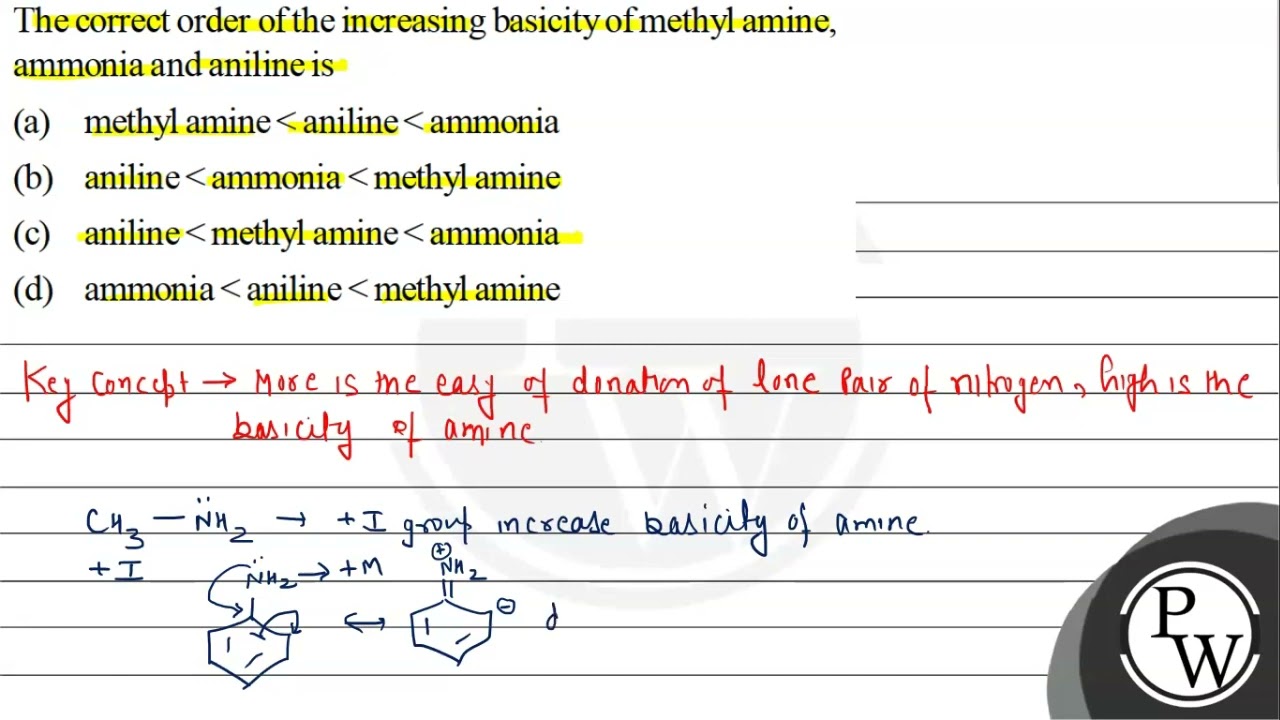 The correct order of the increasing basicity of methyl amine,
ammonia and aniline is
(a) methyl amine < aniline < ammonia
(b) aniline < ammonia < methyl amine
(c) aniline < methyl amine < ammonia
(d) ammonia < aniline < methyl amine
Key concept → More is the easy of donation of lone pair of nitrogen, high is the
basicity of amine.
CH₃ — N̈H₂ → +I group increase basicity of amine.
+I
N̈H₂ → +M
⊕
NH₂
↔
⊖
d
P
W